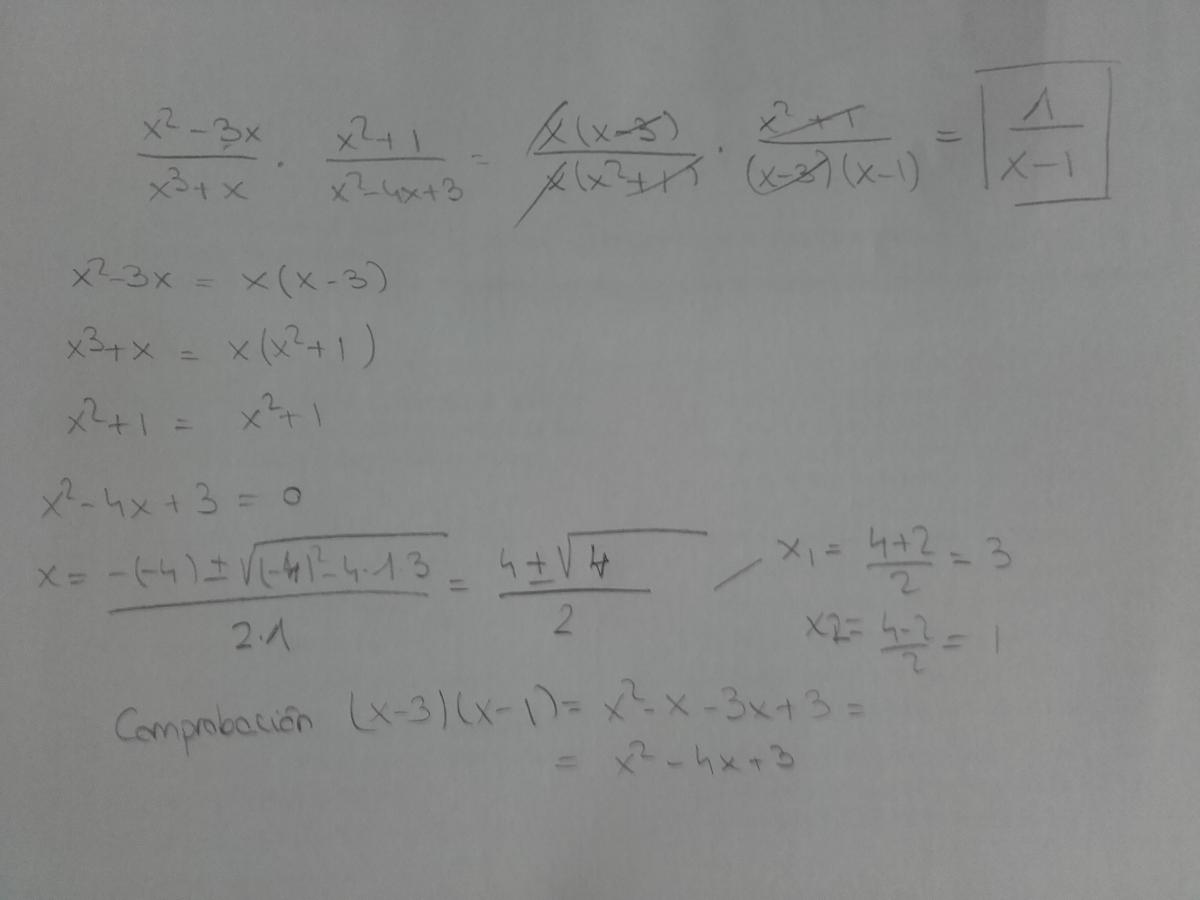 x²-3x / x³+x · x²+1 / x²-4x+3 = x(x-3) / x(x²+1) · x²+1 / (x-3)(x-1) = 1 / x-1
x²-3x = x(x-3)
x³+x = x(x²+1)
x²+1 = x²+1
x²-4x+3 = 0
x = -(-4)±√(-4)²-4·1·3 / 2·1 = 4±√4 / 2 x₁ = 4+2 / 2 = 3
x2 = 4-2 / 2 = 1
Comprobación (x-3)(x-1) = x²-x-3x+3 =
= x²-4x+3